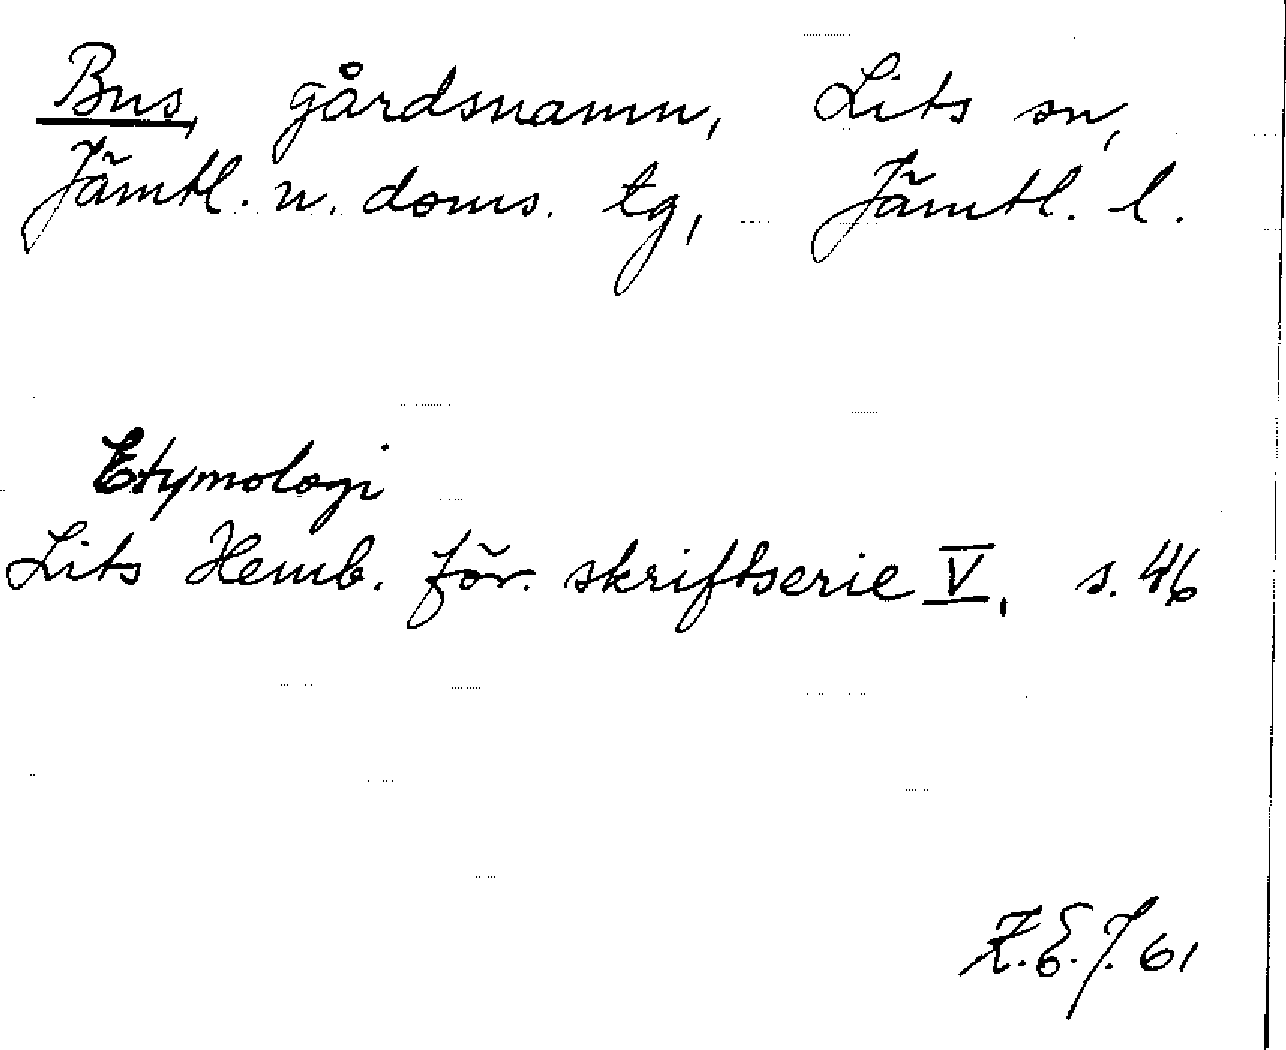 Bus, gårdsnamn, Lits sn,
Jämtl. n. doms. tg, Jämtl. l.
Etymologi
Lits Hemb. för. skriftserie V, s. 46
Z.E.J. 61